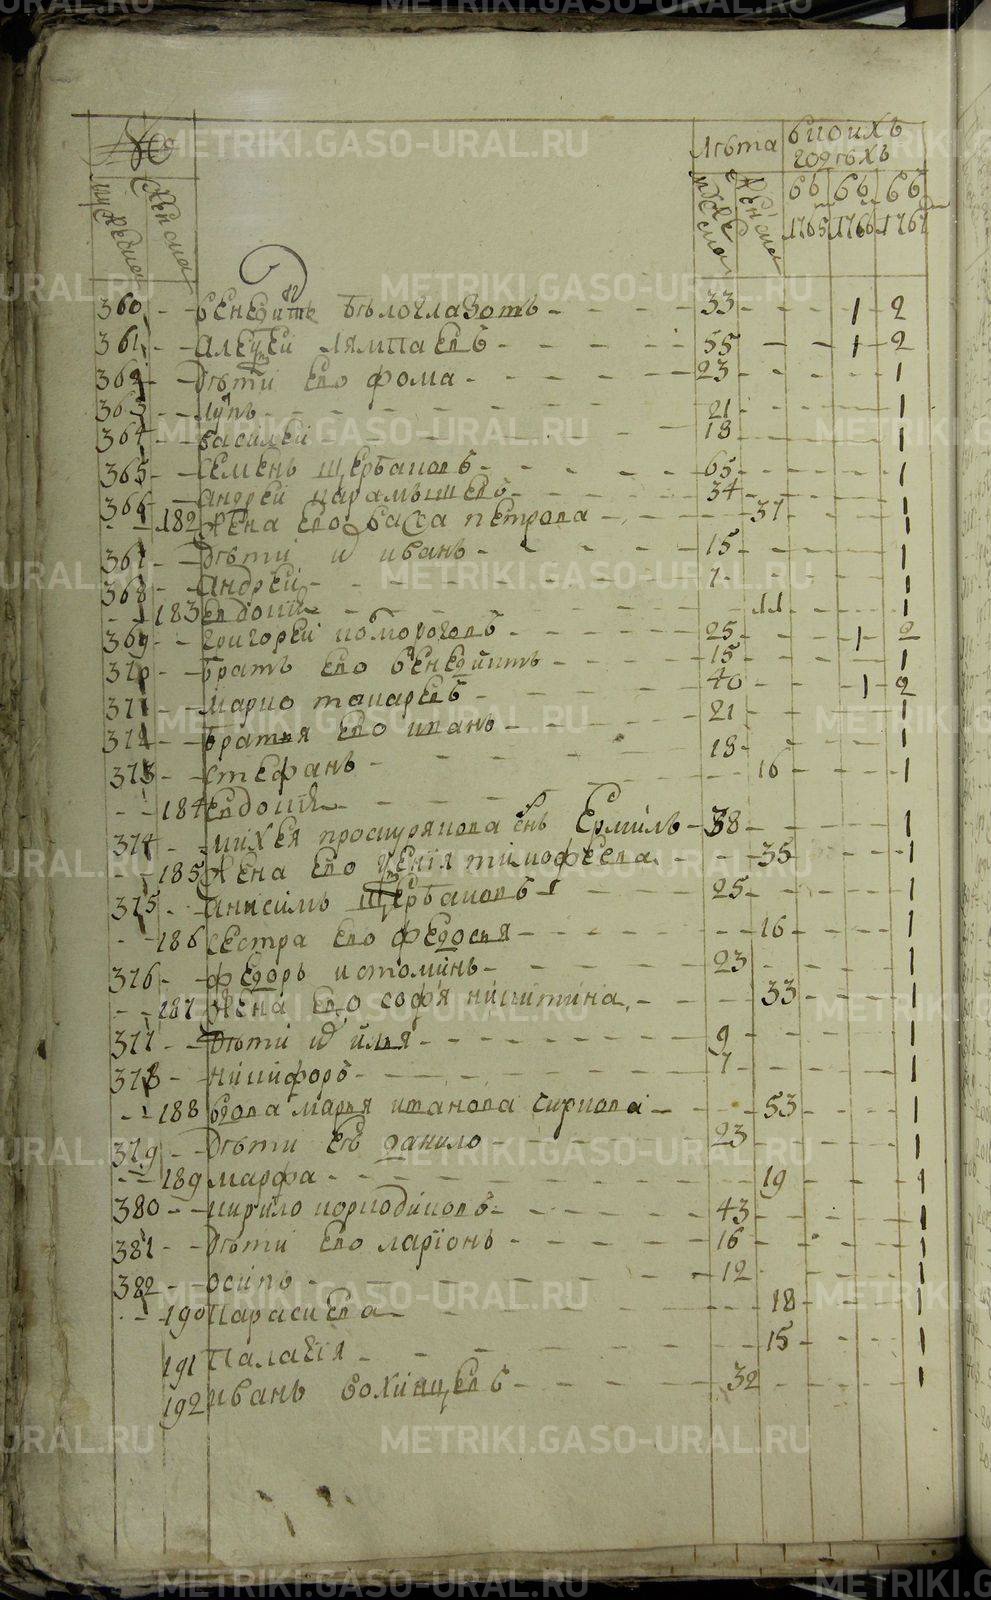 Лѣта
в коихъ годѣхъ
мужеска
женска
мужеска
женска
въ 1765
въ 1766
въ 1767
360 венедиктъ бѣлоглазовъ 33 1 2
361 алексей лямпаевъ 55 1 2
362 дѣти ево фома 23 1
363 лупъ 21 1
364 василей 18 1
365 семенъ щербаковъ 65 1
366 андрей карамышевъ 34 1
182 жена ево васса петрова 37 1
367 дѣти и иванъ 15 1
368 андрей 7 1
183 евдокия 11 1
369 григорей комороговъ 25 1 2
370 братъ ево венедиктъ 15 1
371 марко токаревъ 40 1 2
372 братья ево иванъ 21 1
373 стефанъ 18 1
184 евдокия 16 1
374 михея проскурякова снъ Ермилъ 38 1
185 жена ево ксения тимофеева 35 1
375 анисимъ щербаковъ 25 1
186 сестра ево федосья 16 1
376 федоръ истоминъ 23 1
187 жена ево софя никитина 33 1
377 дѣти и илья 9 1
378 никифоръ 7 1
188 вдова марья иванова сиркова 53 1
379 дѣти еѣ данило 23 1
189 марфа 19 1
380 кирило коркодиновъ 43 1
381 дѣти ево ларионъ 16 1
382 осипъ 12 1
190 парасковя 18 1
191 палагия 15 1
192 иванъ вохинцевъ 32 1
METRIKI.GASO-URAL.RU